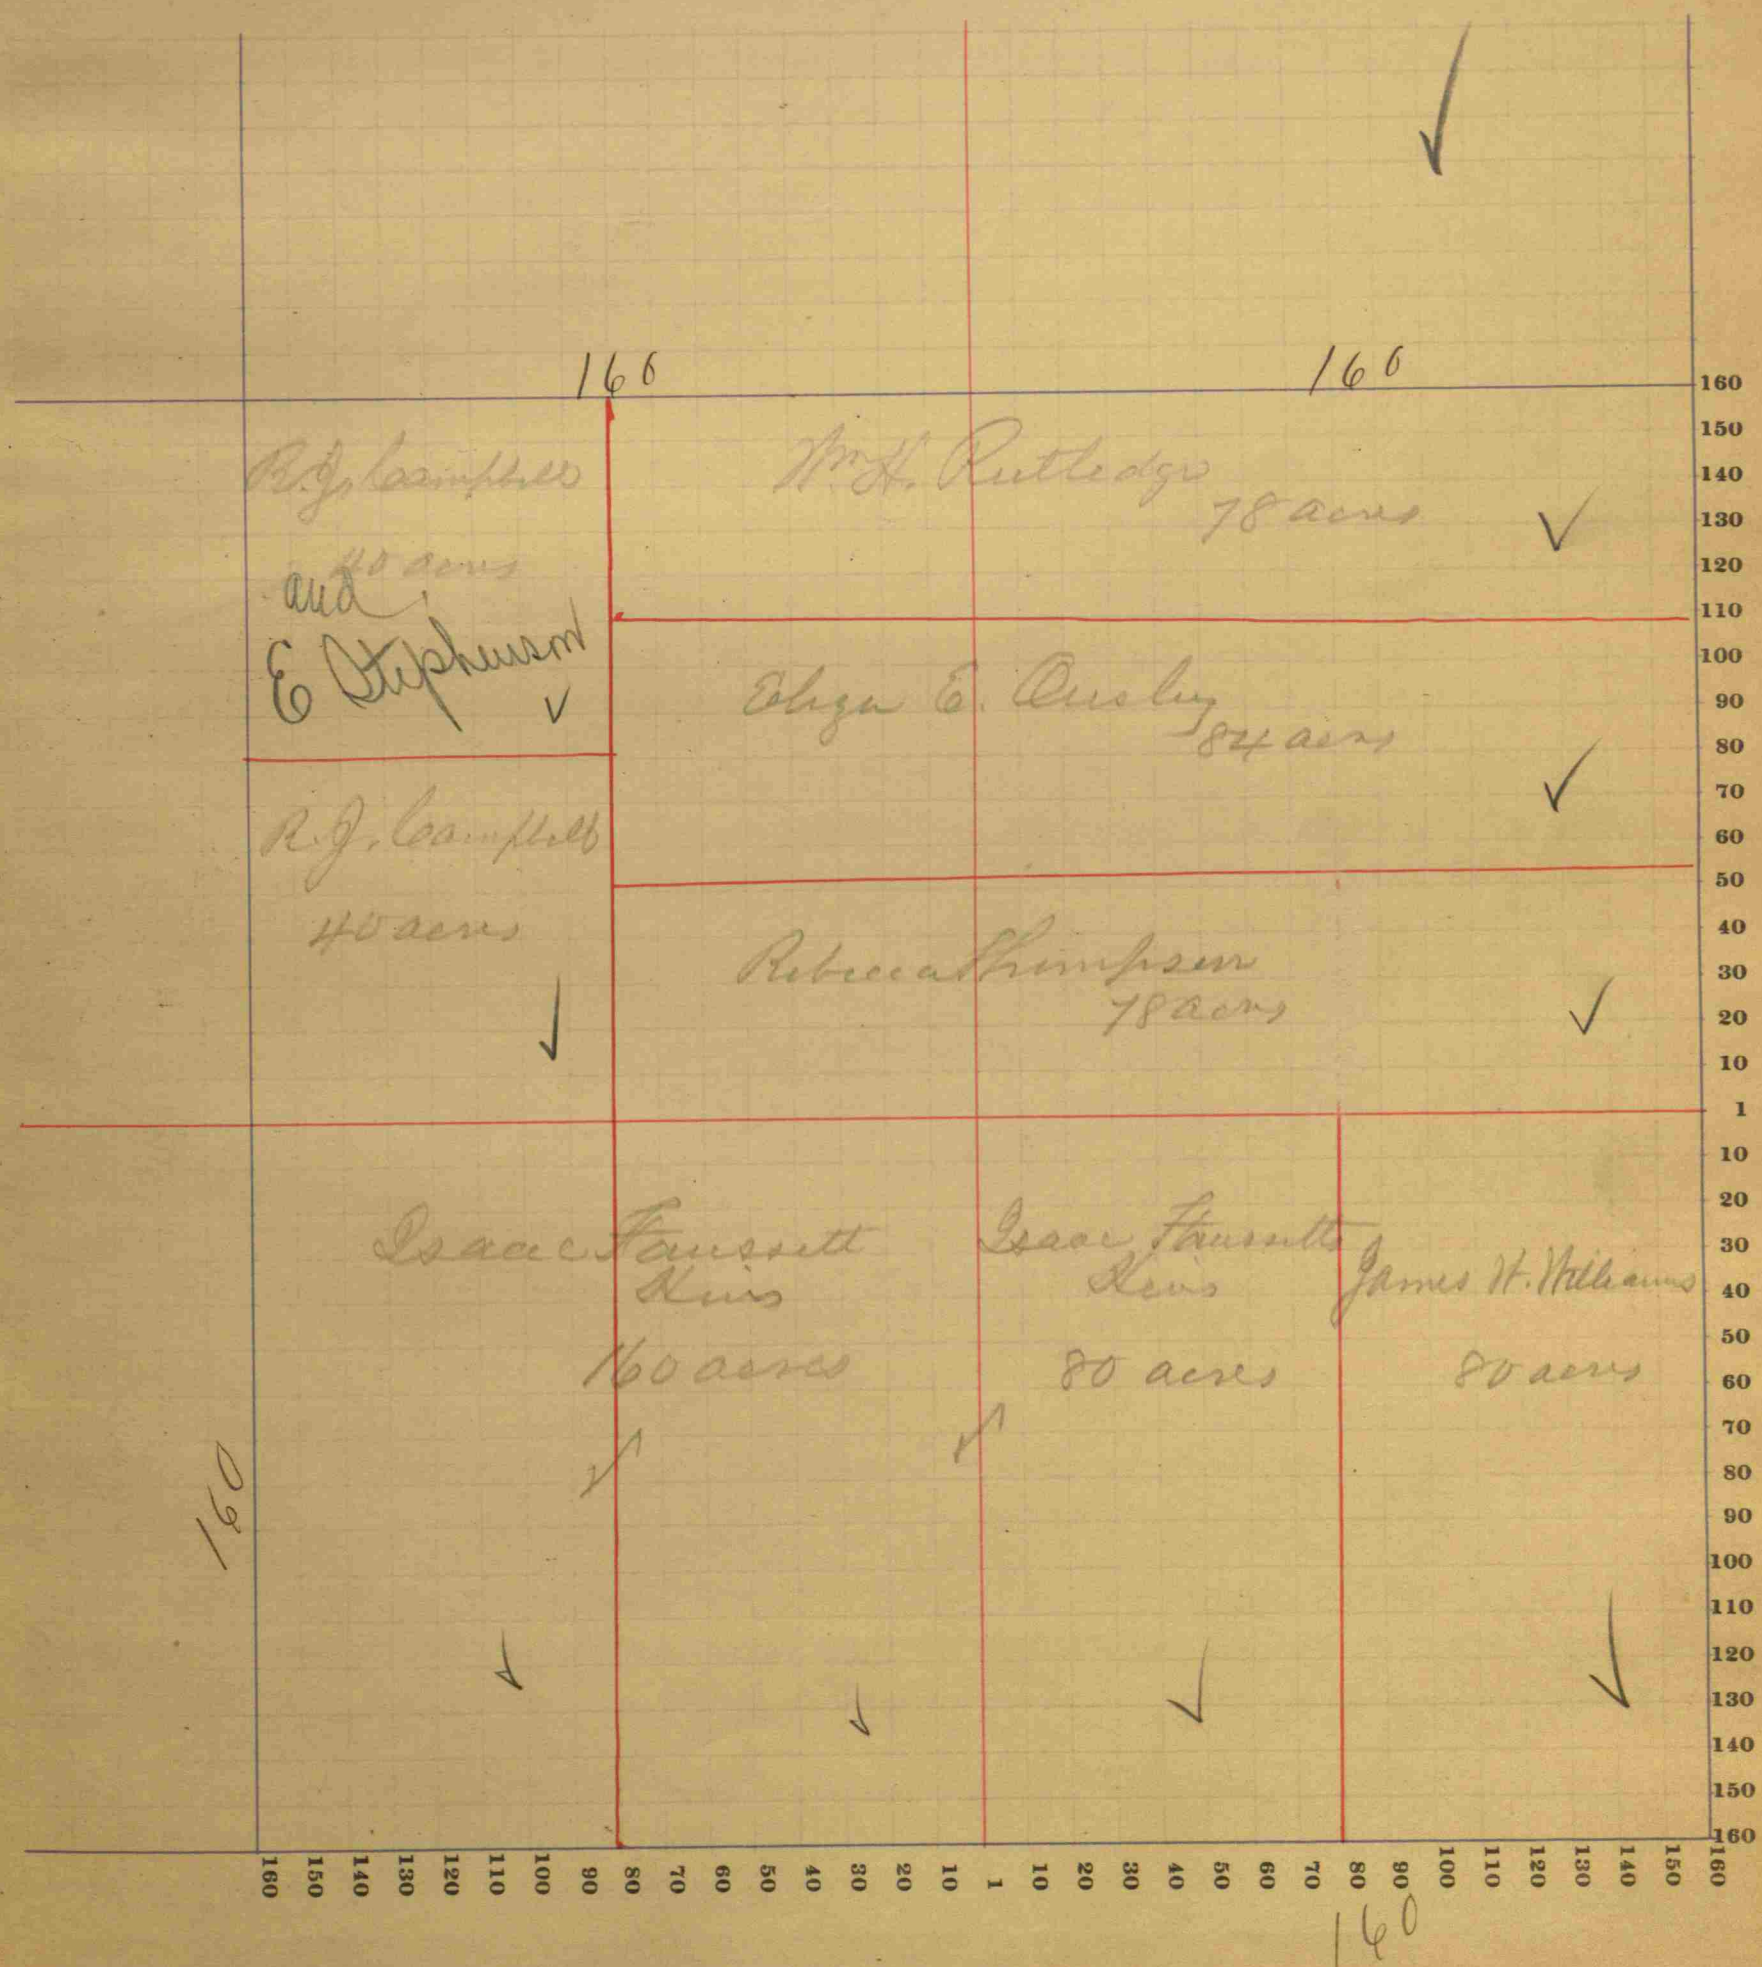 160
160
R. J. Campbell
40 acres
and
E Stephenson
Wm H. Rutledge
78 acres
Eliza E. Ousley
84 acres
R. J. Campbell
40 acres
Rebecca Thimpson
78 acres
Isaac Faussett
Heirs
160 acres
Isaac Faussett
Heirs
80 acres
James H. Williams
80 acres
160
160
150
140
130
120
110
100
90
80
70
60
50
40
30
20
10
1
10
20
30
40
50
60
70
80
90
100
110
120
130
140
150
160
160 150 140 130 120 110 100 90 80 70 60 50 40 30 20 10 1 10 20 30 40 50 60 70 80 90 100 110 120 130 140 150 160
160